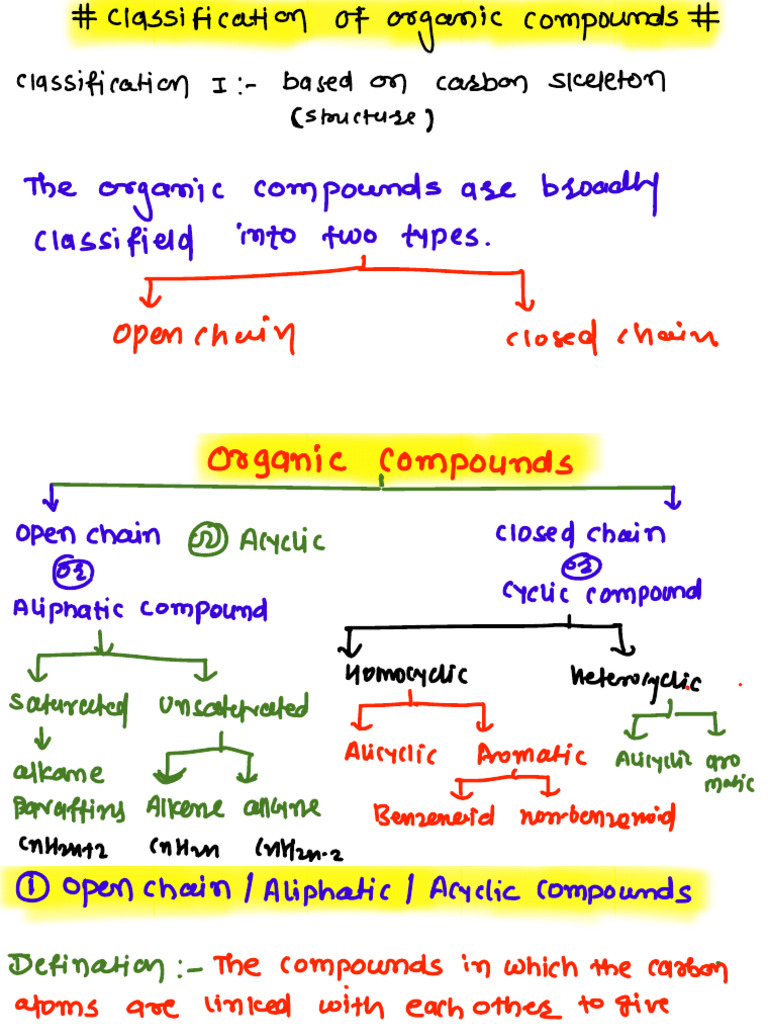 # Classification of organic compounds #
Classification I :- based on carbon skeleton
(structure)
The organic compounds are broadly
classifield into two types.
open chain closed chain
Organic compounds
open chain or Acyclic closed chain
or or
Aliphatic compound cyclic compound
Homocyclic Heterocyclic
Saturated Unsaturated
Alicyclic Aromatic Alicyclic aro
matic
alkane
paraffins Alkene alkyne Benzenoid non-benzenoid
CnH2n+2 CnH2n CnH2n-2
① open chain / Aliphatic / Acyclic compounds
Defination :- The compounds in which the carbon
atoms are linked with each other to give